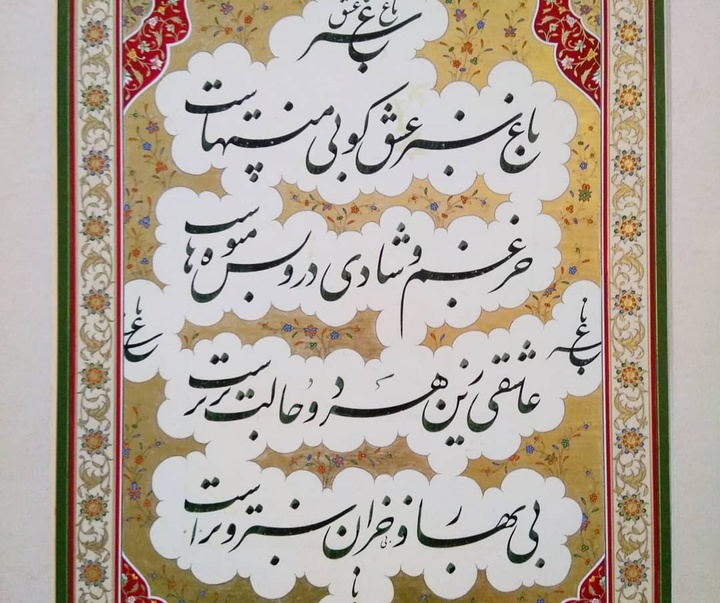 باغ سبز عشق
باغ سبز عشق کو بی منتهاست
جز غم و شادی درو بس میوه هاست
باغ
باغ
عاشقی زین هر دو حالت برترست
بی بهار و بی خزان سبز و ترست
با